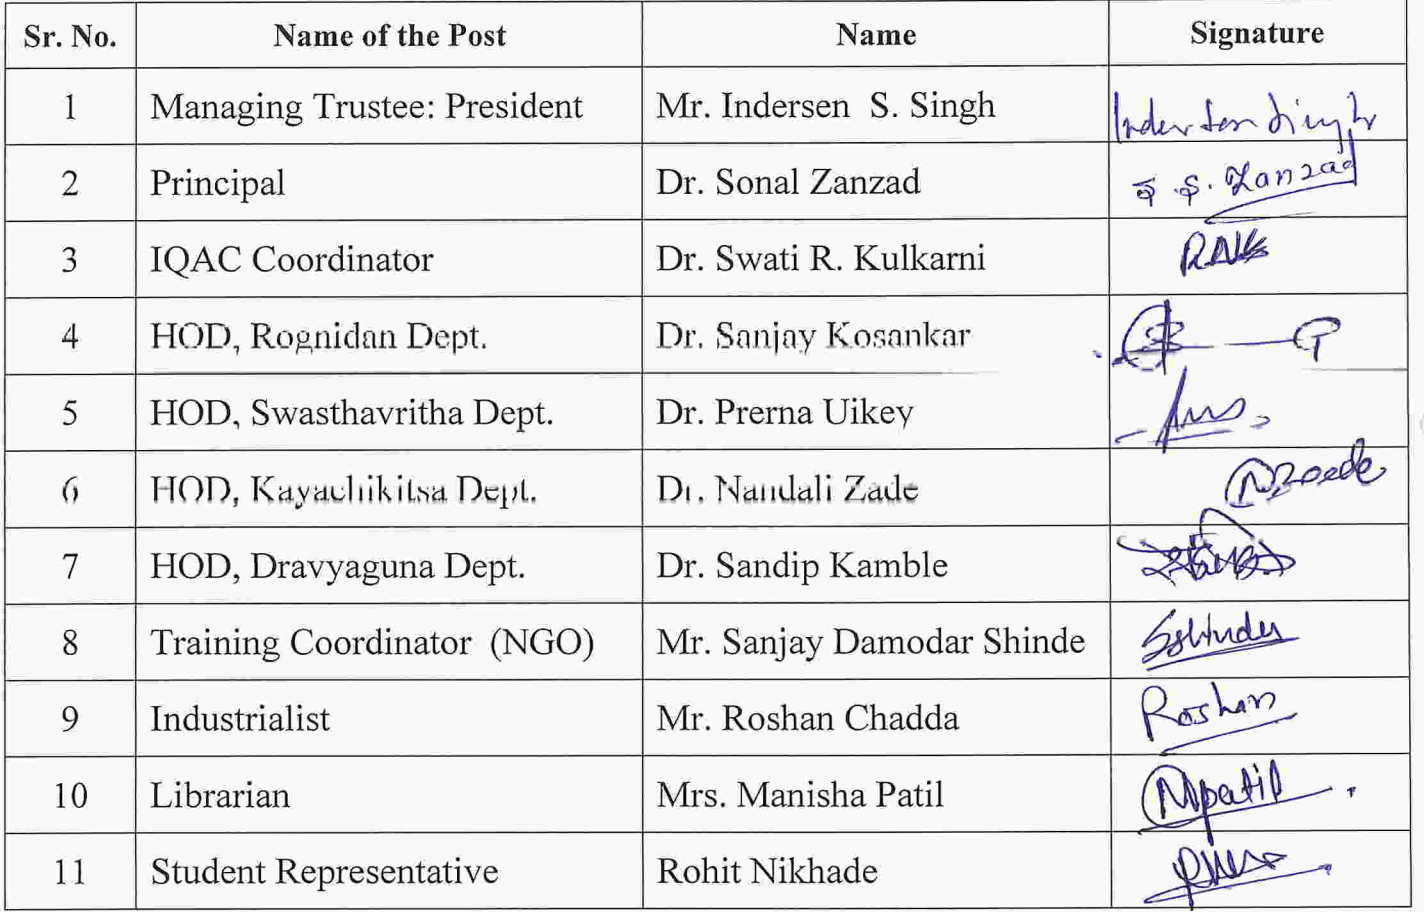 Sr. No. Name of the Post Name Signature
1 Managing Trustee: President Mr. Indersen S. Singh Indersen Singh
2 Principal Dr. Sonal Zanzad S. S. Zanzad
3 IQAC Coordinator Dr. Swati R. Kulkarni
4 HOD, Rognidan Dept. Dr. Sanjay Kosankar
5 HOD, Swasthavritha Dept. Dr. Prerna Uikey
6 HOD, Kayachikitsa Dept. Dr. Nandali Zade
7 HOD, Dravyaguna Dept. Dr. Sandip Kamble
8 Training Coordinator (NGO) Mr. Sanjay Damodar Shinde
9 Industrialist Mr. Roshan Chadda Roshan
10 Librarian Mrs. Manisha Patil Mpatil
11 Student Representative Rohit Nikhade